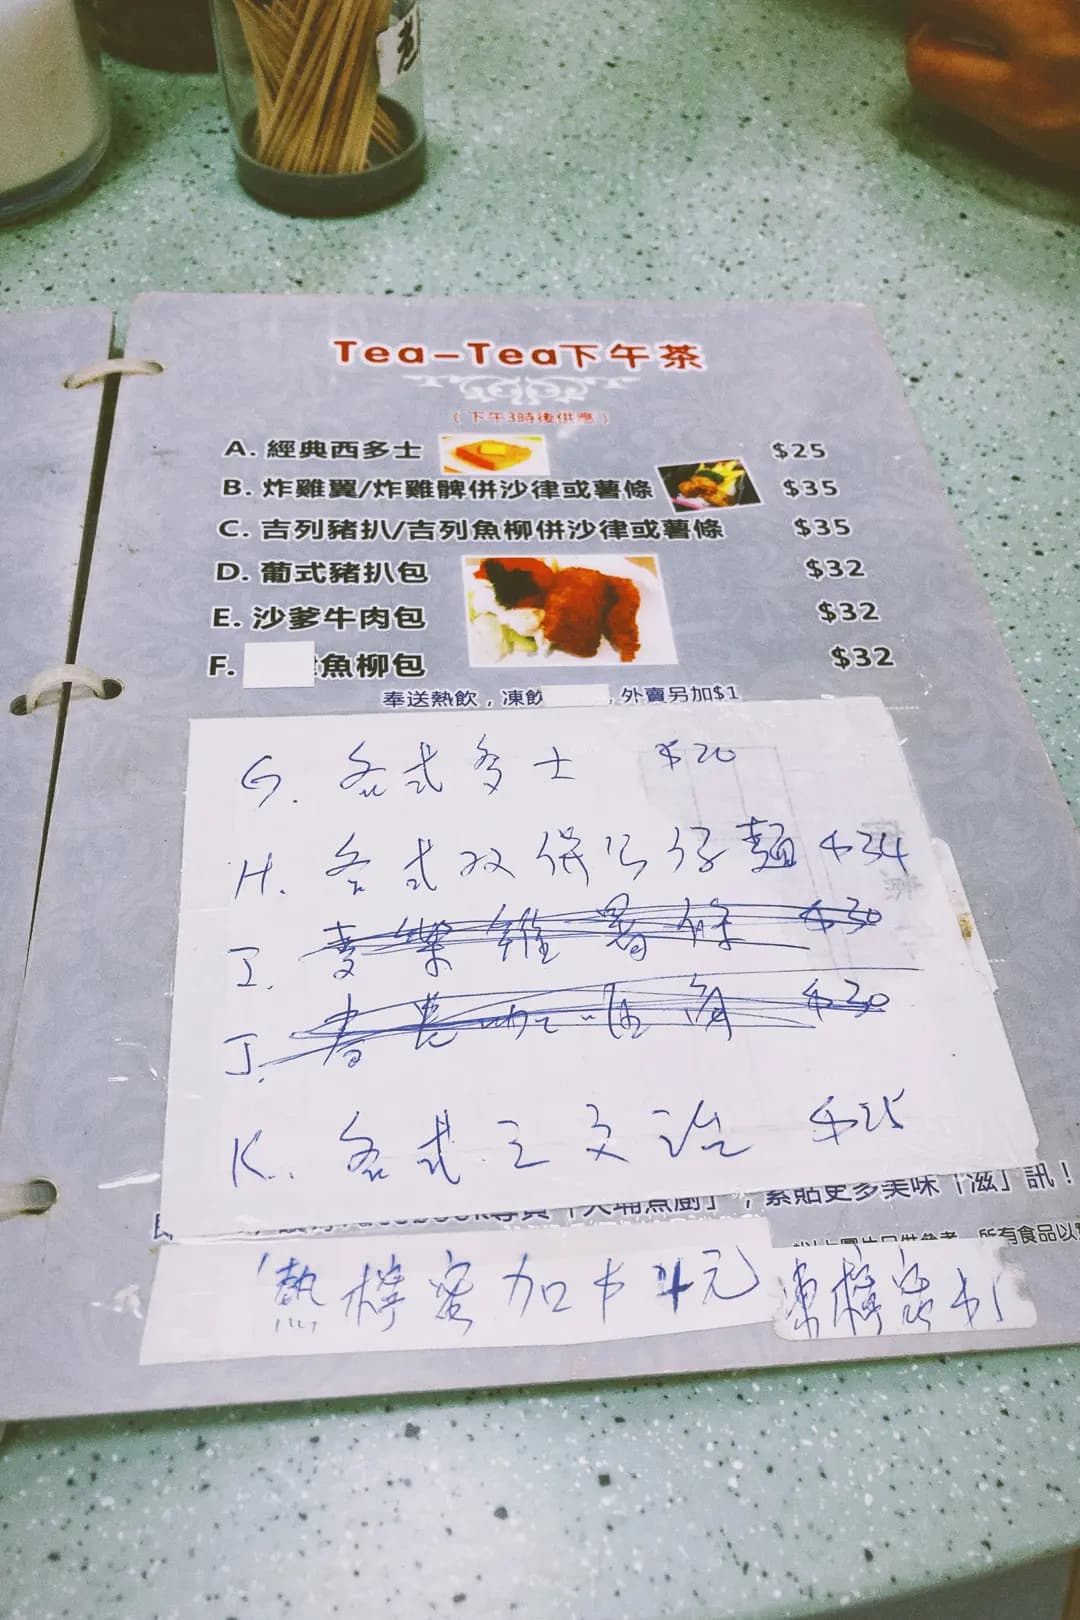 Tea-Tea下午茶
(下午3時後供應)
A. 經典西多士 $25
B. 炸雞翼/炸雞髀併沙律或薯條 $35
C. 吉列豬扒/吉列魚柳併沙律或薯條 $35
D. 葡式豬扒包 $32
E. 沙爹牛肉包 $32
F. 魚柳包 $32
奉送熱飲，凍飲 ，外賣另加$1
G. 各式多士 $20
H. 各式双併公仔麵 $34
I. 麥樂雞薯條 $30
J. $30
K. 各式三文治 $25
專頁「大埔煮廚」，緊貼更多美味「滋」訊！
所有食品以
熱檸蜜加 4元
凍檸蜜